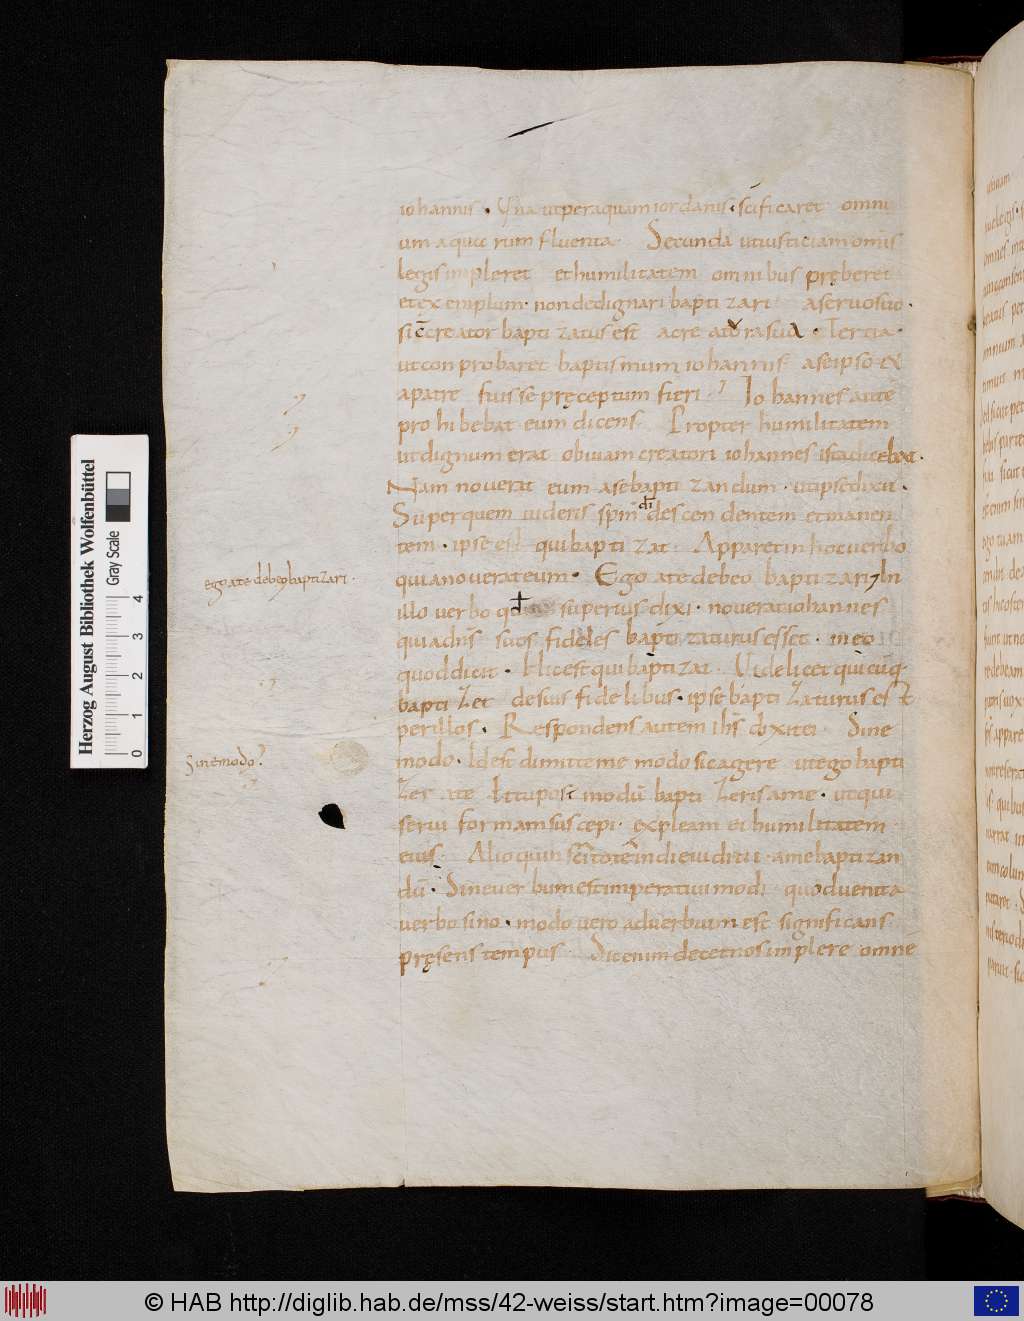 iohannis · Una ut per aquam iordanis · scificaret omni
um aquarum fluenta · Secunda ut iusticiam omnis
legis impleret et humilitatem omnibus pręberet
et exemplum · non dedignari baptizari a servo suo ·
sic creator baptizatus est a creatura sua · Tertia ·
ut conprobaret baptismum iohannis a se ipso &
a patre fuisse pręceptum fieri Iohannes autē
prohibebat eum dicens · Propter humilitatem
ut dignum erat obviam creatori iohannes ista dicebat ·
Nam noverat eum a se baptizandum · ut ipse dixit ·
Super quem videris spm di descendentem et manen
tem · ipse est qui baptizat · Apparet in hoc verbo
quia noverat eum · Ego a te debeo baptizari In
illo verbo qd superius dixi · noverat iohannes
quia dns suos fideles baptizaturus esset · in eo
quod dicit · Hic est qui baptizat · Videlicet quicūq
baptizet de suis fidelibus · ipse baptizaturus est
per illos · Respondens autem ihs dixit ei · Sine
modo · Id est dimitte me modo sic agere ut ego bapti
zer a te Et tu post modū baptizeris a me · ut qui
servi formam suscepi · expleam ei humilitatem
eius · Alioquin
dū · Sine verbum est imperativi modi quod venit a
verbo sino · modo vero adverbium est significans
pręsens tempus · Sic enim decet nos implere omnē
ego a te debeo baptizari ·
Sine modo
Herzog August Bibliothek Wolfenbüttel
Gray Scale
0 1 2 3 4
© HAB http://diglib.hab.de/mss/42-weiss/start.htm?image=00078